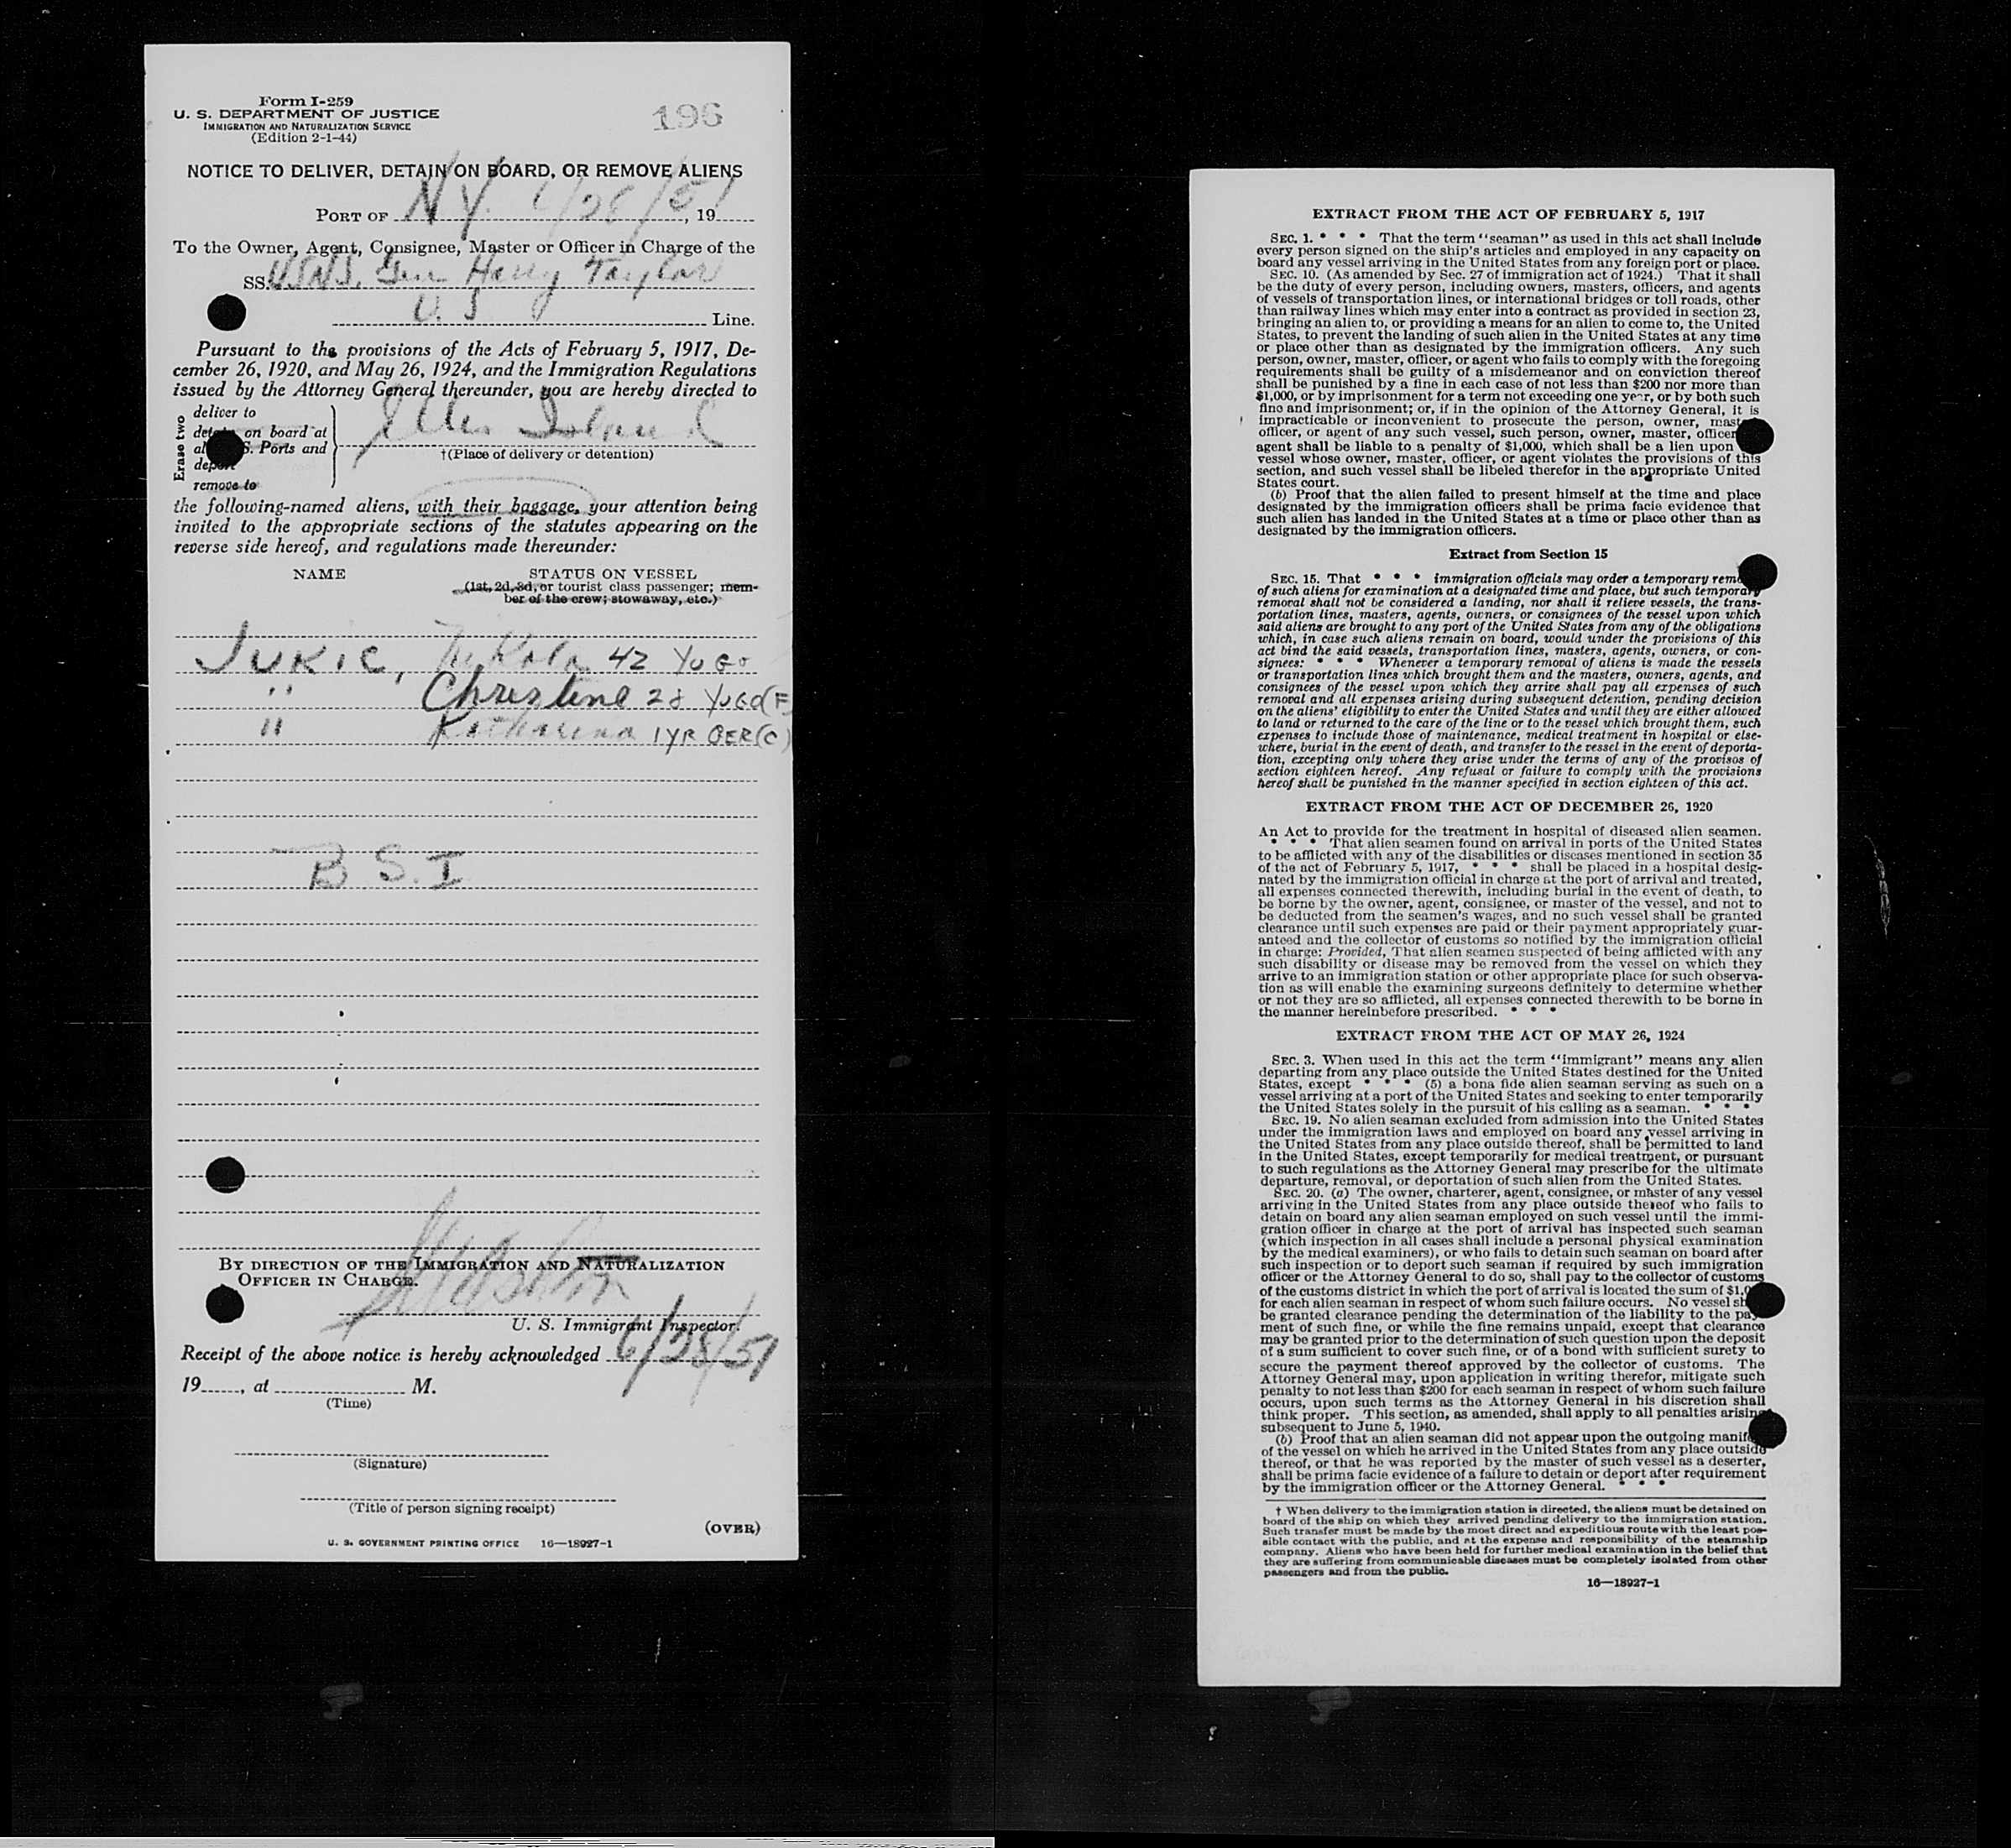 Form I-259
U. S. DEPARTMENT OF JUSTICE
IMMIGRATION AND NATURALIZATION SERVICE
(Edition 2-1-44)
196
NOTICE TO DELIVER, DETAIN ON BOARD, OR REMOVE ALIENS
PORT OF N.Y. 6/28/51, 19
To the Owner, Agent, Consignee, Master or Officer in Charge of the
SS. U.S.N.S. Gen Harry Taylor
U. S Line.
Pursuant to the provisions of the Acts of February 5, 1917, De-
cember 26, 1920, and May 26, 1924, and the Immigration Regulations
issued by the Attorney General thereunder, you are hereby directed to
Erase two
deliver to
on board at
S. Ports and
remove to
Ellis Island
†(Place of delivery or detention)
the following-named aliens, with their baggage, your attention being
invited to the appropriate sections of the statutes appearing on the
reverse side hereof, and regulations made thereunder:
NAME STATUS ON VESSEL
(1st, 2d, 3d, or tourist class passenger; mem-
ber of the crew; stowaway, etc.)
JUKIC, Nikola 42 YUGO
" Christine 28 YUGO(F)
" Katharina 1YR GER(C)
B S. I
BY DIRECTION OF THE IMMIGRATION AND NATURALIZATION
OFFICER IN CHARGE.
U. S. Immigrant Inspector.
Receipt of the above notice is hereby acknowledged 6/28/51
19......, at ............ M.
(Time)
(Signature)
(Title of person signing receipt)
(OVER)
U. S. GOVERNMENT PRINTING OFFICE 16—18927-1
EXTRACT FROM THE ACT OF FEBRUARY 5, 1917
SEC. 1. * * * That the term "seaman" as used in this act shall include
every person signed on the ship's articles and employed in any capacity on
board any vessel arriving in the United States from any foreign port or place.
SEC. 10. (As amended by Sec. 27 of immigration act of 1924.) That it shall
be the duty of every person, including owners, masters, officers, and agents
of vessels of transportation lines, or international bridges or toll roads, other
than railway lines which may enter into a contract as provided in section 23,
bringing an alien to, or providing a means for an alien to come to, the United
States, to prevent the landing of such alien in the United States at any time
or place other than as designated by the immigration officers. Any such
person, owner, master, officer, or agent who fails to comply with the foregoing
requirements shall be guilty of a misdemeanor and on conviction thereof
shall be punished by a fine in each case of not less than $200 nor more than
$1,000, or by imprisonment for a term not exceeding one year, or by both such
fine and imprisonment; or, if in the opinion of the Attorney General, it is
impracticable or inconvenient to prosecute the person, owner, master
officer, or agent of any such vessel, such person, owner, master, officer
agent shall be liable to a penalty of $1,000, which shall be a lien upon
vessel whose owner, master, officer, or agent violates the provisions of this
section, and such vessel shall be libeled therefor in the appropriate United
States court.
(b) Proof that the alien failed to present himself at the time and place
designated by the immigration officers shall be prima facie evidence that
such alien has landed in the United States at a time or place other than as
designated by the immigration officers.
Extract from Section 15
SEC. 15. That * * * immigration officials may order a temporary remo
of such aliens for examination at a designated time and place, but such temporary
removal shall not be considered a landing, nor shall it relieve vessels, the trans-
portation lines, masters, agents, owners, or consignees of the vessel upon which
said aliens are brought to any port of the United States from any of the obligations
which, in case such aliens remain on board, would under the provisions of this
act bind the said vessels, transportation lines, masters, agents, owners, or con-
signees: * * * Whenever a temporary removal of aliens is made the vessels
or transportation lines which brought them and the masters, owners, agents, and
consignees of the vessel upon which they arrive shall pay all expenses of such
removal and all expenses arising during subsequent detention, pending decision
on the aliens' eligibility to enter the United States and until they are either allowed
to land or returned to the care of the line or to the vessel which brought them, such
expenses to include those of maintenance, medical treatment in hospital or else-
where, burial in the event of death, and transfer to the vessel in the event of deporta-
tion, excepting only where they arise under the terms of any of the provisos of
section eighteen hereof. Any refusal or failure to comply with the provisions
hereof shall be punished in the manner specified in section eighteen of this act.
EXTRACT FROM THE ACT OF DECEMBER 26, 1920
An Act to provide for the treatment in hospital of diseased alien seamen.
* * * That alien seamen found on arrival in ports of the United States
to be afflicted with any of the disabilities or diseases mentioned in section 35
of the act of February 5, 1917, * * * shall be placed in a hospital desig-
nated by the immigration official in charge at the port of arrival and treated,
all expenses connected therewith, including burial in the event of death, to
be borne by the owner, agent, consignee, or master of the vessel, and not to
be deducted from the seamen's wages, and no such vessel shall be granted
clearance until such expenses are paid or their payment appropriately guar-
anteed and the collector of customs so notified by the immigration official
in charge: Provided, That alien seamen suspected of being afflicted with any
such disability or disease may be removed from the vessel on which they
arrive to an immigration station or other appropriate place for such observa-
tion as will enable the examining surgeons definitely to determine whether
or not they are so afflicted, all expenses connected therewith to be borne in
the manner hereinbefore prescribed. * * *
EXTRACT FROM THE ACT OF MAY 26, 1924
SEC. 3. When used in this act the term "immigrant" means any alien
departing from any place outside the United States destined for the United
States, except * * * (5) a bona fide alien seaman serving as such on a
vessel arriving at a port of the United States and seeking to enter temporarily
the United States solely in the pursuit of his calling as a seaman. * * *
SEC. 19. No alien seaman excluded from admission into the United States
under the immigration laws and employed on board any vessel arriving in
the United States from any place outside thereof, shall be permitted to land
in the United States, except temporarily for medical treatment, or pursuant
to such regulations as the Attorney General may prescribe for the ultimate
departure, removal, or deportation of such alien from the United States.
SEC. 20. (a) The owner, charterer, agent, consignee, or master of any vessel
arriving in the United States from any place outside thereof who fails to
detain on board any alien seaman employed on such vessel until the immi-
gration officer in charge at the port of arrival has inspected such seaman
(which inspection in all cases shall include a personal physical examination
by the medical examiners), or who fails to detain such seaman on board after
such inspection or to deport such seaman if required by such immigration
officer or the Attorney General to do so, shall pay to the collector of customs
of the customs district in which the port of arrival is located the sum of $1,0
for each alien seaman in respect of whom such failure occurs. No vessel sh
be granted clearance pending the determination of the liability to the pay-
ment of such fine, or while the fine remains unpaid, except that clearance
may be granted prior to the determination of such question upon the deposit
of a sum sufficient to cover such fine, or of a bond with sufficient surety to
secure the payment thereof approved by the collector of customs. The
Attorney General may, upon application in writing therefor, mitigate such
penalty to not less than $200 for each seaman in respect of whom such failure
occurs, upon such terms as the Attorney General in his discretion shall
think proper. This section, as amended, shall apply to all penalties arising
subsequent to June 5, 1940.
(b) Proof that an alien seaman did not appear upon the outgoing manif
of the vessel on which he arrived in the United States from any place outside
thereof, or that he was reported by the master of such vessel as a deserter,
shall be prima facie evidence of a failure to detain or deport after requirement
by the immigration officer or the Attorney General. * * *
† When delivery to the immigration station is directed, the aliens must be detained on
board of the ship on which they arrived pending delivery to the immigration station.
Such transfer must be made by the most direct and expeditious route with the least pos-
sible contact with the public, and at the expense and responsibility of the steamship
company. Aliens who have been held for further medical examination in the belief that
they are suffering from communicable diseases must be completely isolated from other
passengers and from the public.
16—18927-1